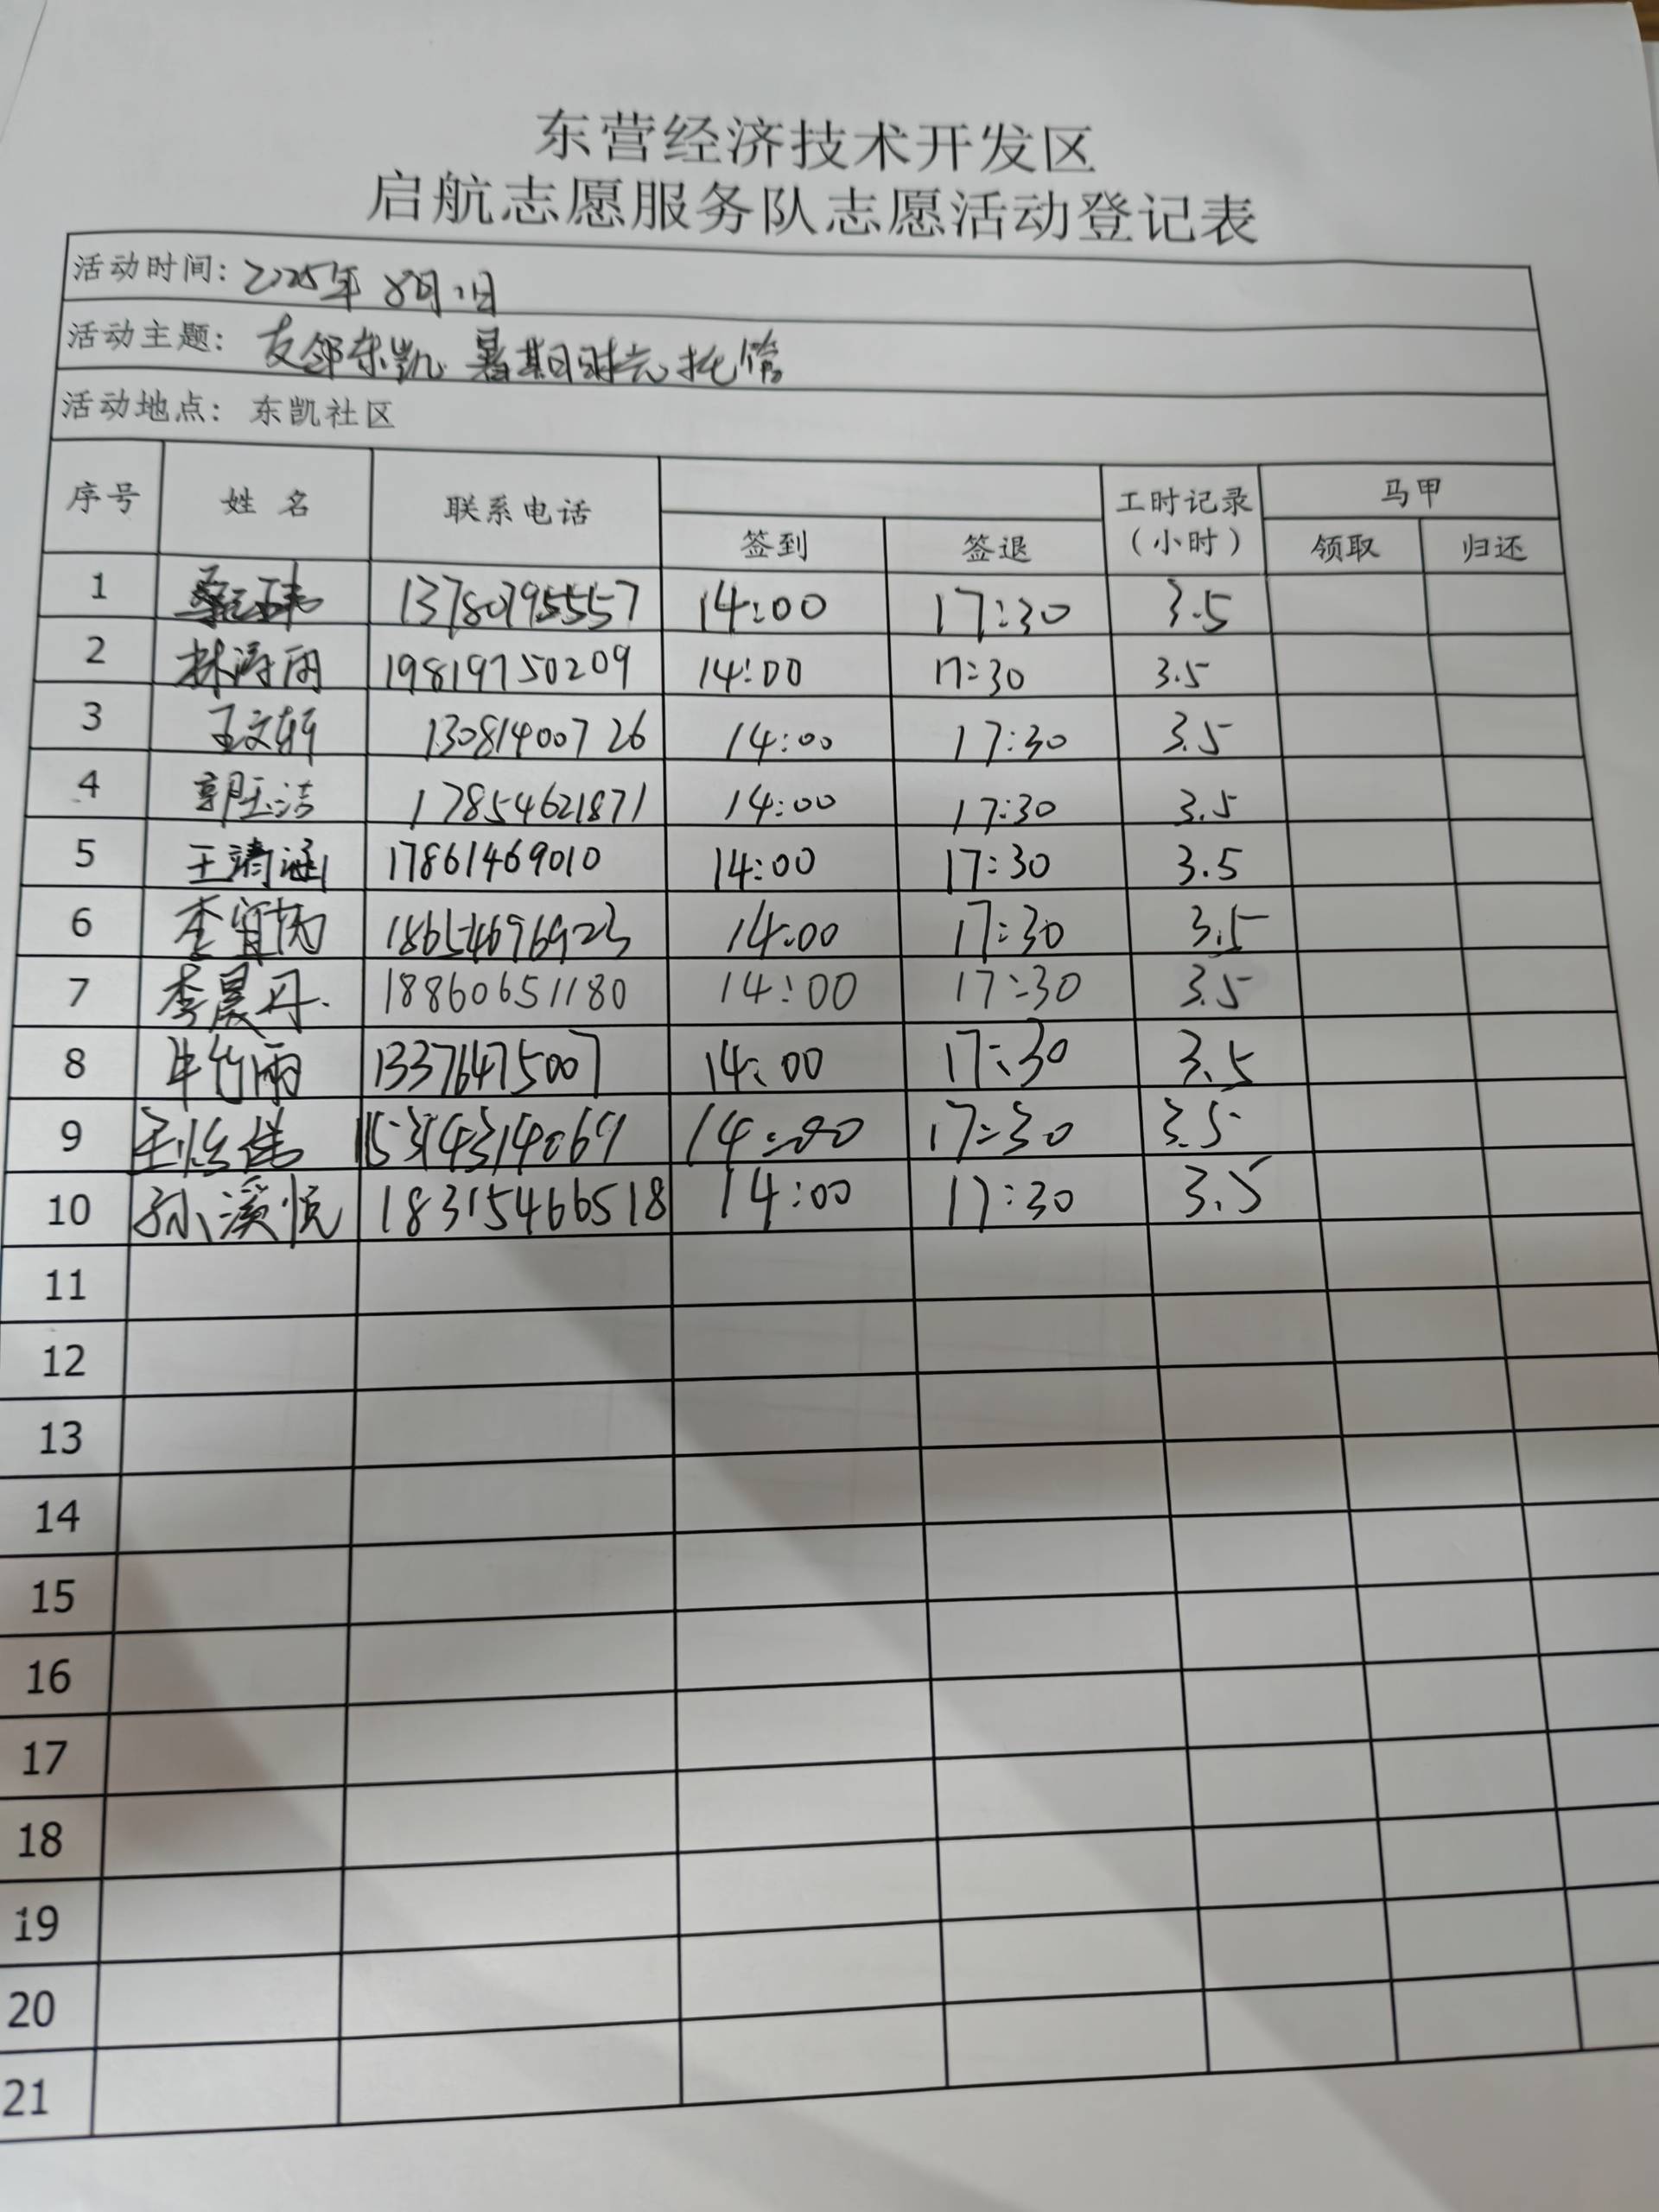 东营经济技术开发区
启航志愿服务队志愿活动登记表
活动时间: 2025年 8月1日
活动主题: 友邻东凯 暑期时光托管
活动地点: 东凯社区
序号 姓名 联系电话 工时记录(小时) 马甲
签到 签退 领取 归还
1 13780795557 14:00 17:30 3.5
2 林海雨 19819750209 14:00 17:30 3.5
3 王文轩 13081400726 14:00 17:30 3.5
4 郭玉洁 17854621871 14:00 17:30 3.5
5 王靖涵 17861469010 14:00 17:30 3.5
6 李宜芮 18654696923 14:00 17:30 3.5
7 李晨丹 18860651180 14:00 17:30 3.5
8 牛竹雨 13376475007 14:00 17:30 3.5
9 14:00 17:30 3.5
10 孙溪悦 18315466518 14:00 17:30 3.5
11
12
13
14
15
16
17
18
19
20
21